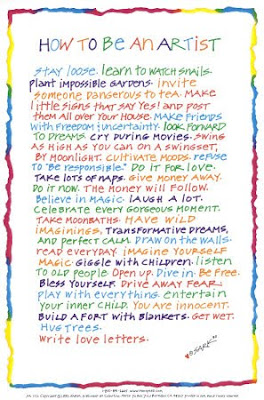 HOW TO BE AN ARTIST
STAY LOOSE. learn to WATCH snails.
plant impossible gardens. invite
someone dangerous to tea. Make
little signs that say Yes! and post
them all over Your House. Make Friends
with Freedom & uncertainty. look forward
to dreams. Cry during movies. Swing
as high as you can on a swingset,
by moonlight. Cultivate moods. refuse
to "be responsible." Do it for love.
Take lots of naps. Give money away.
Do it now. The money will follow.
Believe in magic. laugh a lot.
Celebrate every gorgeous moment.
Take moonbaths. Have wild
imaginings, Transformative dreams,
and perfect calm. Draw on the walls.
read everyday. Imagine yourself
magic. Giggle with children. listen
to old people. Open up. Dive in. Be Free.
Bless yourself. Drive away fear.
play with everything. entertain
your inner child. You are innocent.
Build a fort with blankets. Get wet.
Hug Trees.
Write love letters.
SARK